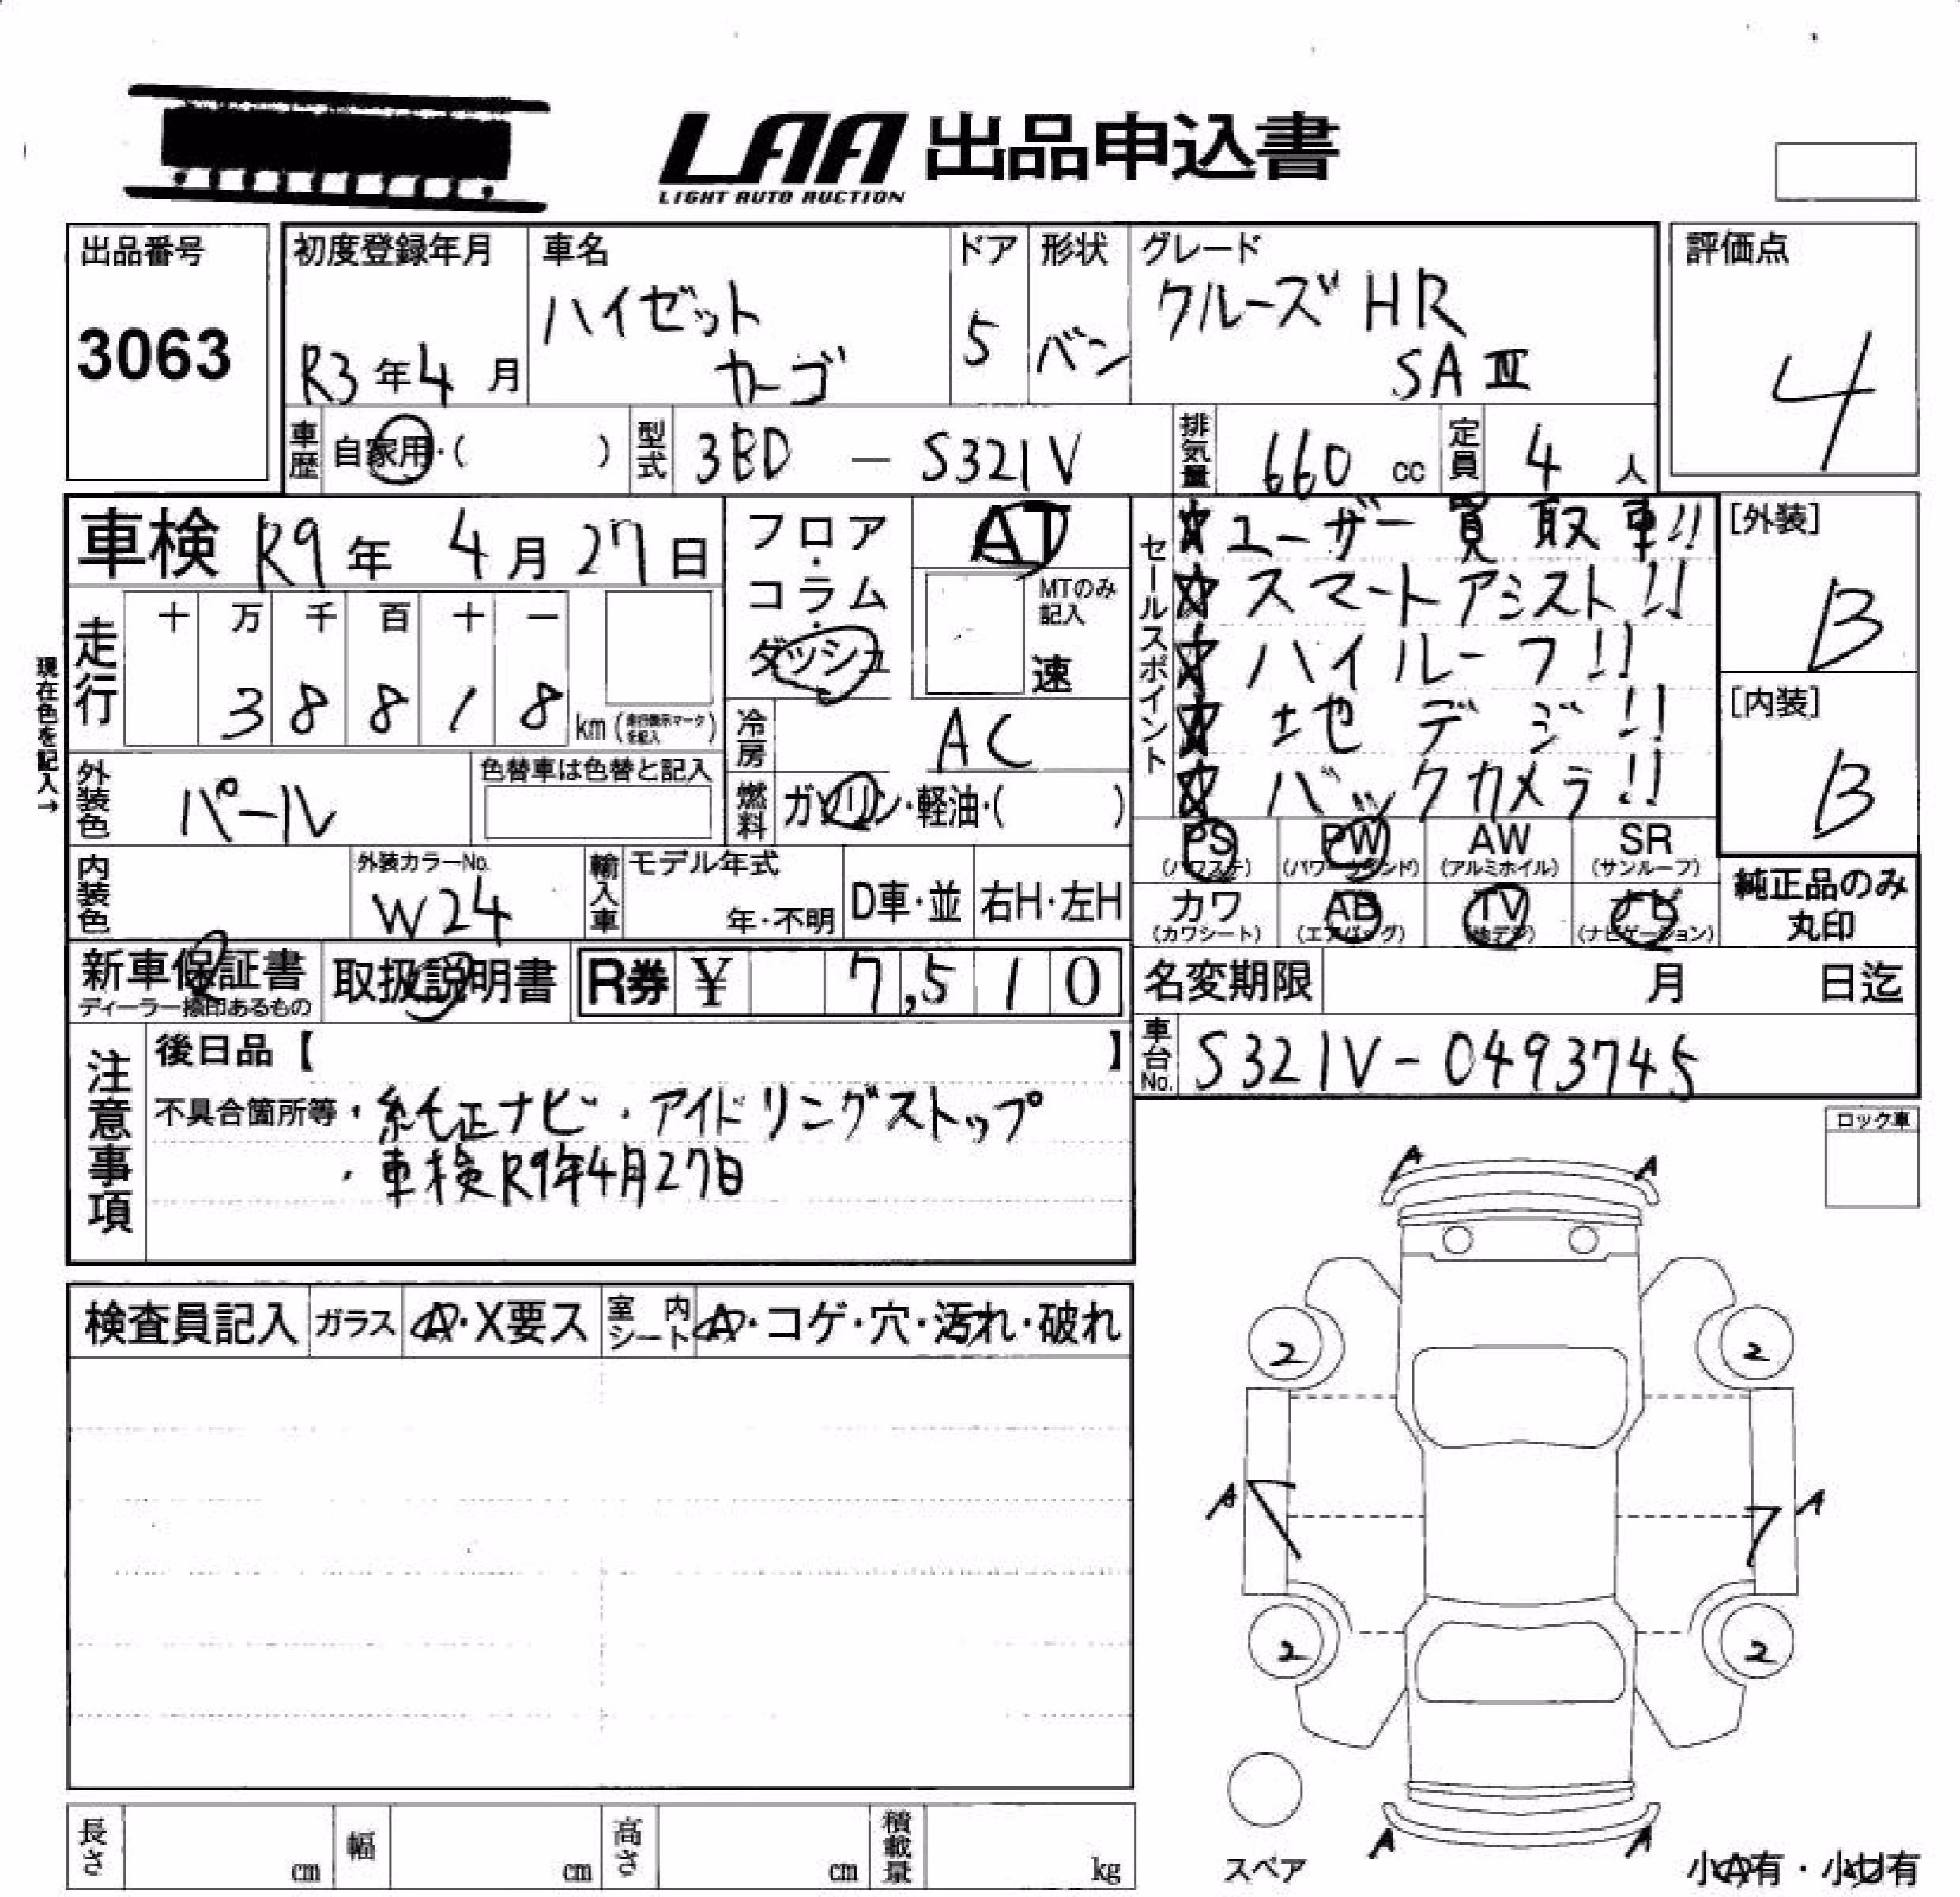 LAA 出品申込書
LIGHT AUTO AUCTION
出品番号
3063
初度登録年月
R3年4月
車名
ハイゼット
カーゴ
ドア
5
形状
バン
グレード
クルーズ HR
SAⅢ
評価点
4
車歴
自家用・( )
型式
3BD - S321V
排気量
660 cc
定員
4 人
車検 R9年 4月 27日
走行
十 万 千 百 十 一
3 8 8 1 8 km (走行表示マークを記入)
現在色を記入→
外装色
パール
色替車は色替と記入
内装色
外装カラーNo.
W24
フロア・コラム・ダッシュ
AT
MTのみ記入
速
冷房
AC
燃料
ガソリン・軽油・( )
輸入車
モデル年式
年・不明
D車・並
右H・左H
セールスポイント
☆ユーザー買取車!!
☆スマートアシスト!!
☆ハイルーフ!!
☆地デジ!!
☆バックカメラ!!
[外装]
B
[内装]
B
PS (パワステ)
PW (パワーウインド)
AW (アルミホイル)
SR (サンルーフ)
カワ (カワシート)
AB (エアバッグ)
TV (地デジ)
ナビ (ナビゲーション)
純正品のみ
丸印
新車保証書
ディーラー捺印あるもの
取扱説明書
R券 ¥ 7,510
名変期限 月 日迄
車台No.
S321V-0493745
注意事項
後日品【 】
不具合箇所等・純正ナビ・アイドリングストップ
・車検R9年4月27日
ロック車
検査員記入
ガラス
A・X要ス
室内シート
A・コゲ・穴・汚れ・破れ
A A
2 2
A A
2 2
A A
スペア
小A有・小U有
長さ cm
幅 cm
高さ cm
積載量 kg